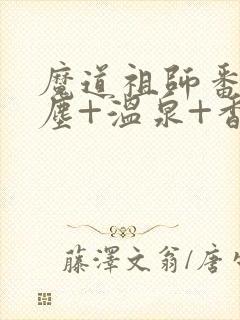 魔道祖師番
塵+溫泉+香
藤澤文翁/唐